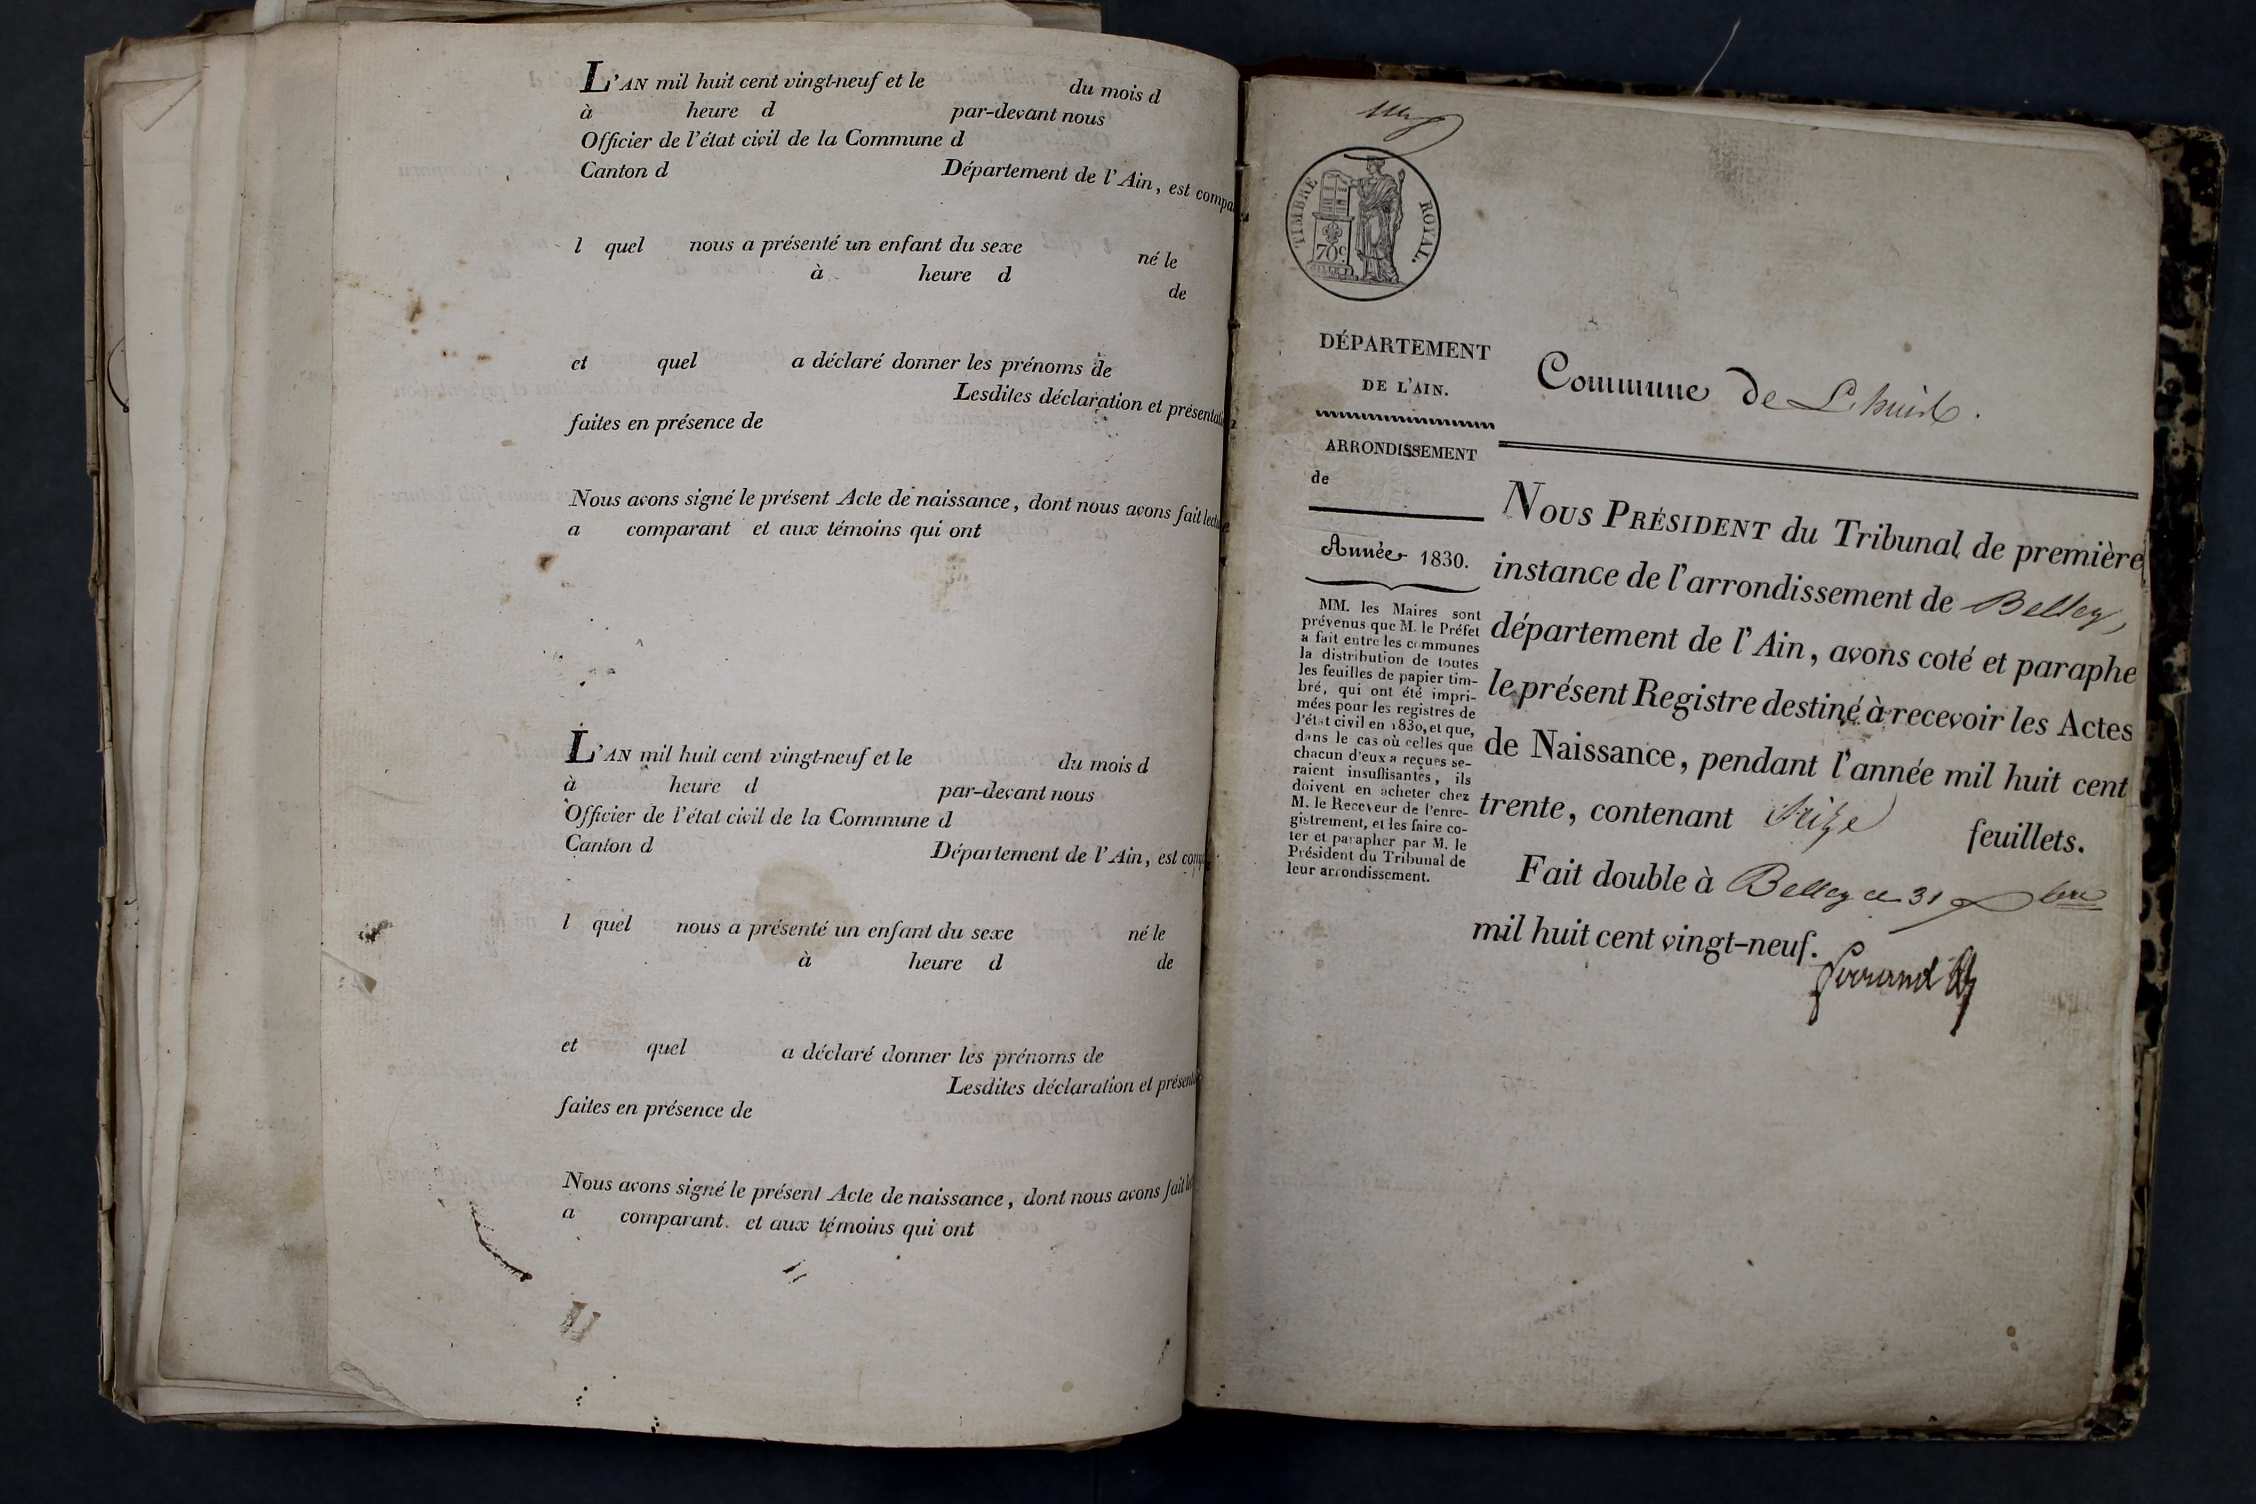 L'AN mil huit cent vingt-neuf et le du mois d
à heure d par-devant nous
Officier de l'état civil de la Commune d
Canton d Département de l'Ain, est compa
l quel nous a présenté un enfant du sexe né le
à heure d de
et quel a déclaré donner les prénoms de
Lesdites déclaration et présentati
faites en présence de
Nous avons signé le présent Acte de naissance, dont nous avons fait lecture
a comparant et aux témoins qui ont
L'AN mil huit cent vingt-neuf et le du mois d
à heure d par-devant nous
Officier de l'état civil de la Commune d
Canton d Département de l'Ain, est comp
l quel nous a présenté un enfant du sexe né le
à heure d de
et quel a déclaré donner les prénoms de
Lesdites déclaration et présenta
faites en présence de
Nous avons signé le présent Acte de naissance, dont nous avons fait le
a comparant et aux témoins qui ont
TIMBRE ROYAL.
70c
DÉPARTEMENT
DE L'AIN.
ARRONDISSEMENT
de
Année 1830.
MM. les Maires sont
prévenus que M. le Préfet
a fait entre les communes
la distribution de toutes
les feuilles de papier tim-
bré, qui ont été impri-
mées pour les registres de
l'état civil en 1830, et que,
dans le cas où celles que
chacun d'eux a reçues se-
raient insuffisantes, ils
doivent en acheter chez
M. le Receveur de l'enre-
gistrement, et les faire co-
ter et parapher par M. le
Président du Tribunal de
leur arrondissement.
Commune de Lhuis.
NOUS PRÉSIDENT du Tribunal de première
instance de l'arrondissement de Belley,
département de l'Ain, avons coté et paraphe
le présent Registre destiné à recevoir les Actes
de Naissance, pendant l'année mil huit cent
trente, contenant seize feuillets.
Fait double à Belley ce 31 xbre
mil huit cent vingt-neuf.